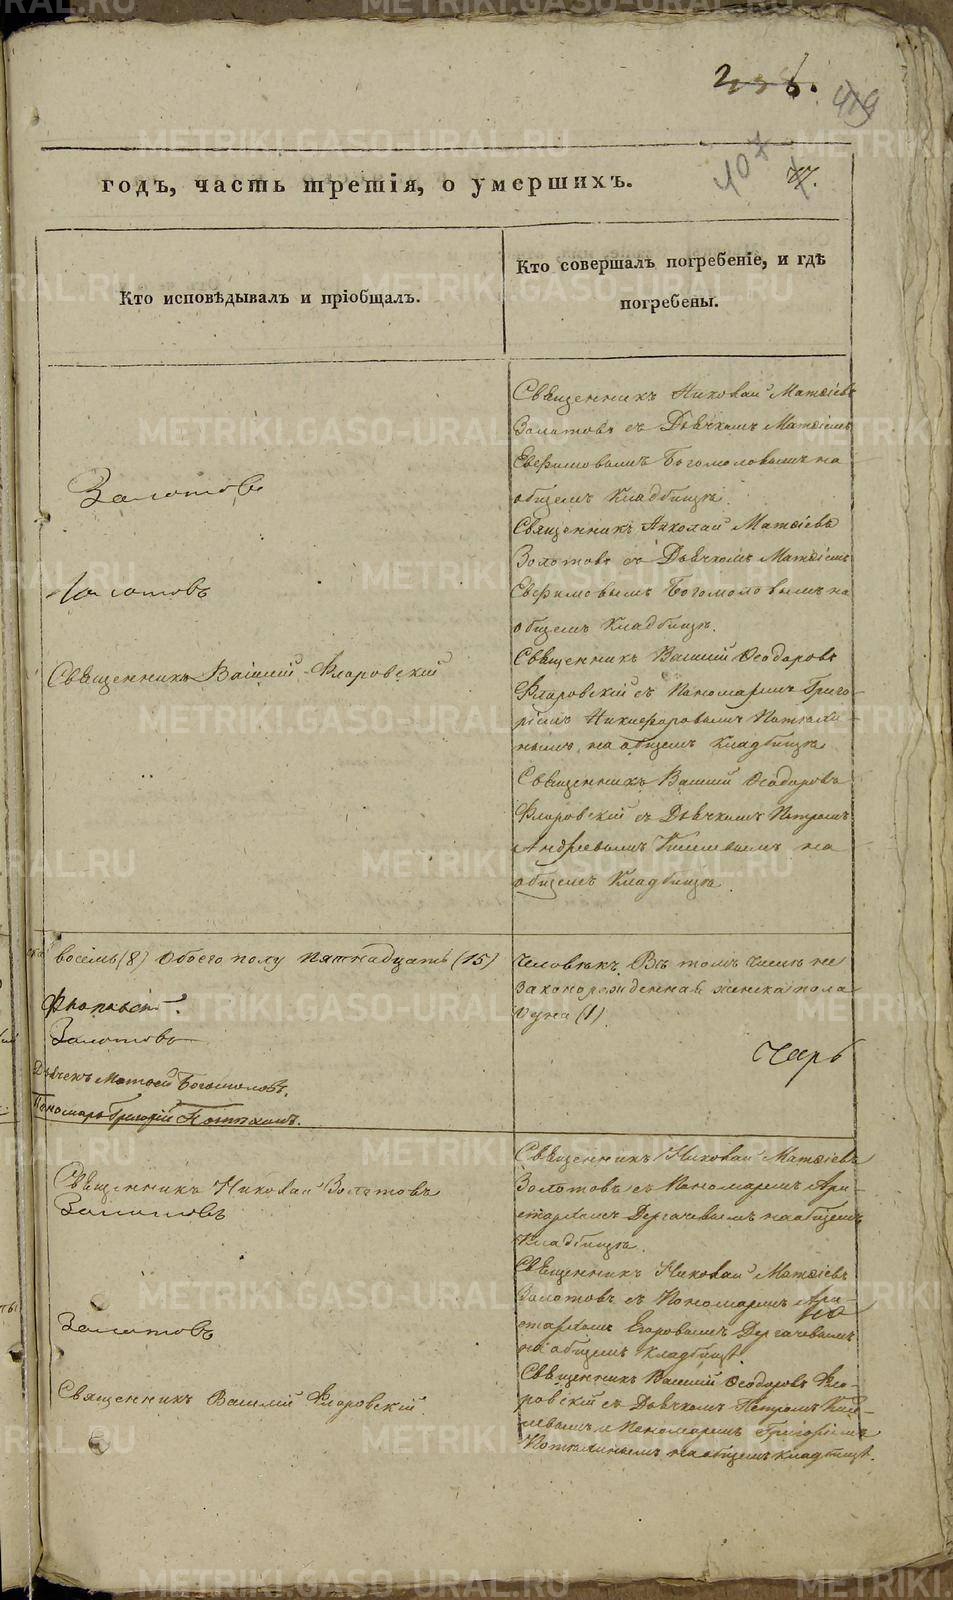 236.
419
107
77.
годъ, часть третія, о умершихъ.
Кто исповѣдывалъ и пріобщалъ.
Кто совершалъ погребеніе, и гдѣ
погребены.
Священникъ Николай Матѳіевъ
Золотовъ съ Дьячкомъ Матѳіемъ
Евфимовымъ Богомоловымъ на
общемъ Кладбищѣ.
Золотовъ
Священникъ Николай Матѳіевъ
Золотовъ съ Дьячкомъ Матѳіемъ
Евфимовымъ Богомоловымъ на
общемъ Кладбищѣ.
Золотовъ
Священникъ Василій Флоровскій
Священникъ Василій Ѳеодоровъ
Флоровскій съ Пономаремъ Григо-
ріемъ Никифоровымъ Потехи-
нымъ, на общемъ кладбищѣ
Священникъ Василій Ѳеодоровъ
Флоровскій съ Дьячкомъ Петромъ
Андреевымъ на
общемъ Кладбищѣ.
восемь (8) Обоего полу пятнадцать (15)
Человѣкъ. Въ томъ числѣ не
законорожденная женска пола
Одна (1).
Флоровскій.
Золотовъ
Дьячекъ Матѳей Богомоловъ.
Пономарь Григорій Потехинъ.
Священникъ Николай Золотовъ
Золотовъ
Священникъ Николай Матѳіевъ
Золотовъ съ Пономаремъ Ари-
стархомъ Дергачевымъ на общемъ
Кладбищѣ.
Золотовъ
Священникъ Николай Матѳіевъ
Золотовъ съ Пономаремъ Ари-
стархомъ Егоровымъ Дергачевымъ
на общемъ кладбищѣ.
Священникъ Василій Флоровскій.
Священникъ Василій Ѳеодоровъ Фло-
ровскій съ Дьячкомъ Петромъ
и Пономаремъ Григоріемъ
Потехинымъ на общемъ кладбищѣ.
METRIKI.GASO-URAL.RU